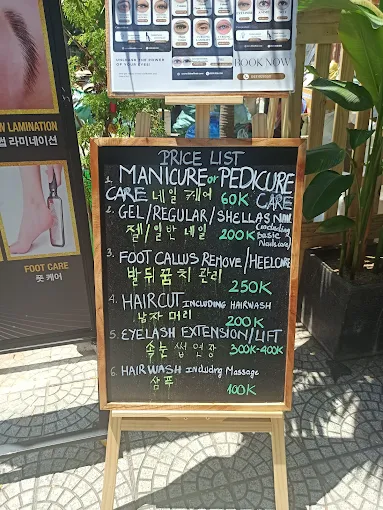 BOOK NOW
N LAMINATION
썹 라미네이션
FOOT CARE
풋 케어
PRICE LIST
1. MANICURE or PEDICURE
CARE 네일 케어 60K CARE
2. GEL/REGULAR/SHELLAS NAIL
젤/일반 네일 200K (including Basic Nailscare)
3. FOOT CALLUS REMOVE/HEELCARE
발 뒤꿈치 관리
250K
4. HAIRCUT INCLUDING HAIRWASH
남자 머리 200K
5. EYELASH EXTENSION/LIFT
속눈썹 연장 300K-400K
6. HAIRWASH including Massage
샴푸 100K